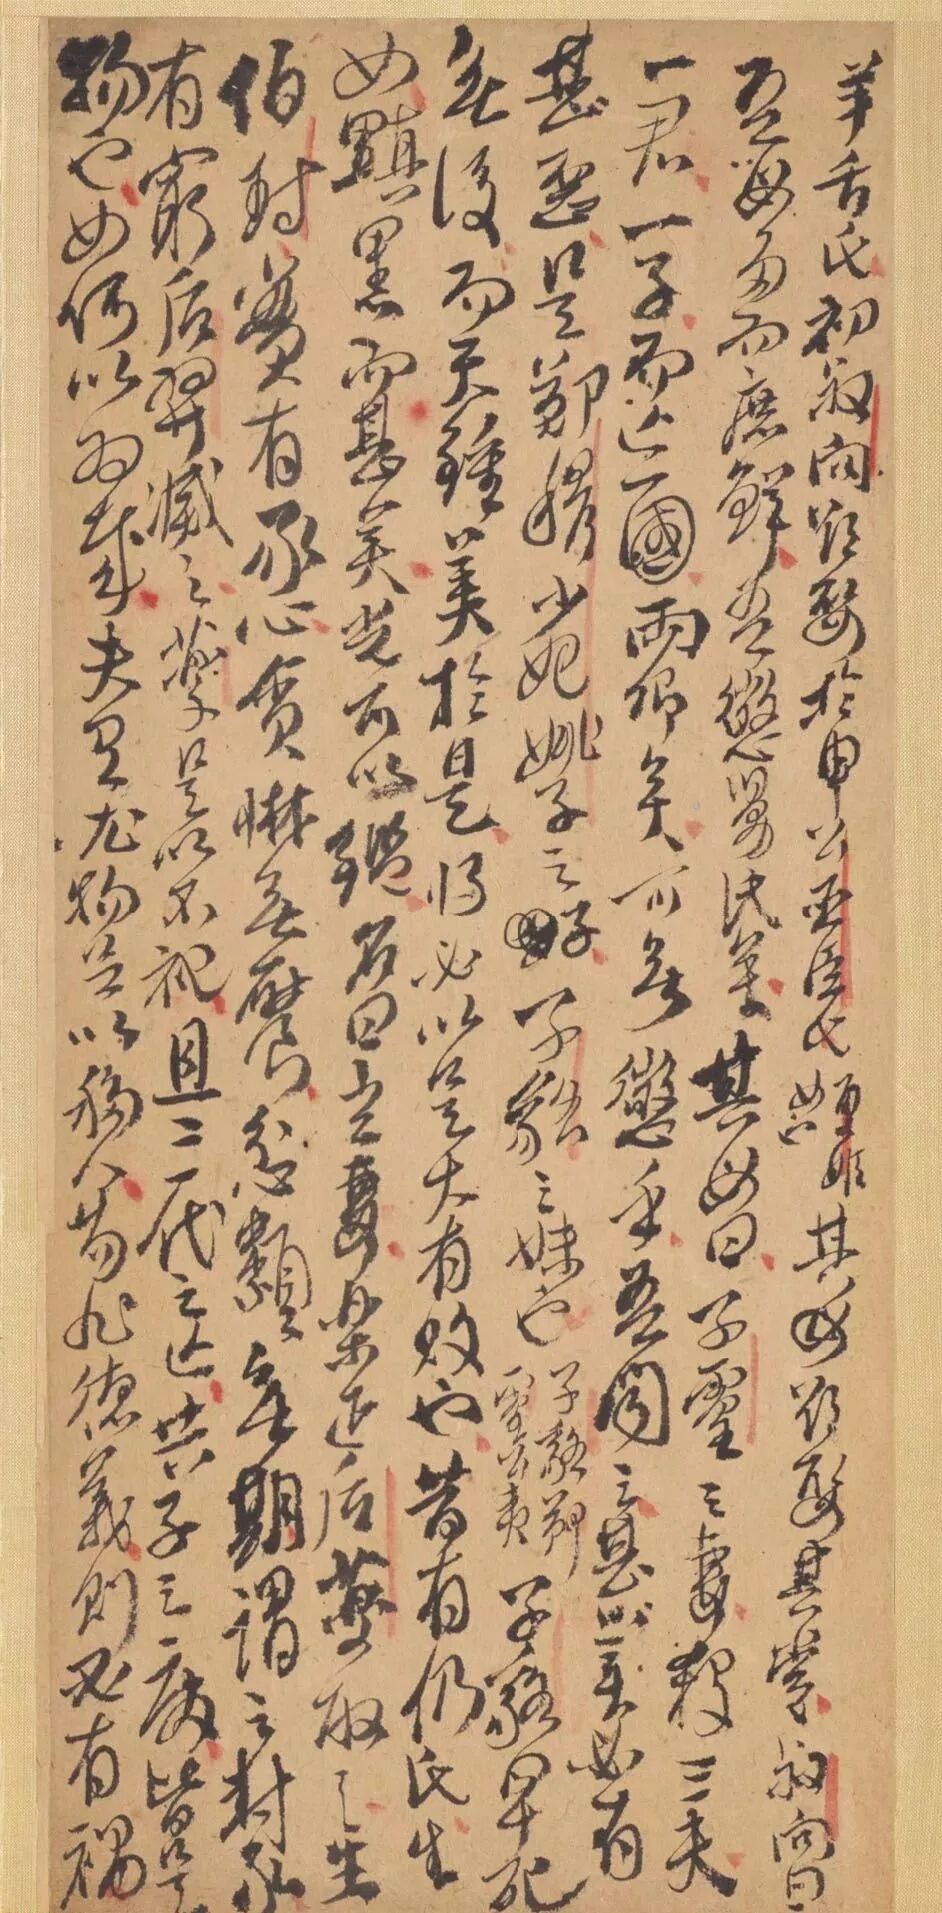 羊舌氏初叔向欲娶於申公巫臣氏夏姬其母欲娶其黨叔向曰
吾母多而庶鮮吾懲舅氏矣其母曰子靈之妻殺三夫
一君一子而亡一國兩卿矣可無懲乎吾聞之甚美必有
甚惡是鄭穆少妃姚子之子子貉之妹也子貉鄭靈公夷子貉早死
無後而天鍾美於是將必以是大有敗也昔有仍氏生
女黰黑而甚美光可以鑑名曰玄妻樂正后夔取之生
伯封實有豕心貪惏無饜忿纇無期謂之封豕
有窮后羿滅之夔是以不祀且三代之亡共子之廢皆是
物也女何以為哉夫有尤物足以移人苟非德義則必有禍